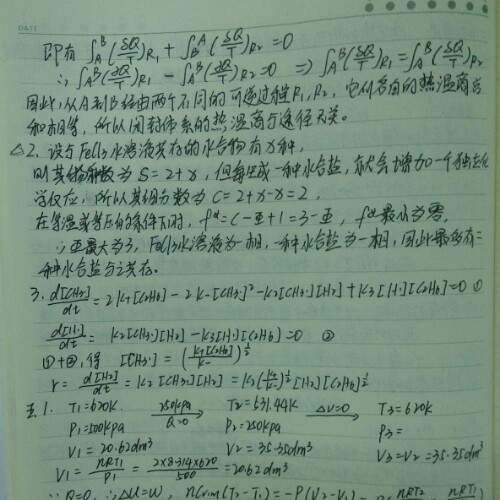 DATE
即有 ∫_A^B (δQ/T)_{R1} + ∫_B^A (δQ/T)_{R2} = 0
∴ ∫_A^B (δQ/T)_{R1} - ∫_A^B (δQ/T)_{R2} = 0 ⇒ ∫_A^B (δQ/T)_{R1} = ∫_A^B (δQ/T)_{R2}
因此,从A到B经由两个不同的可逆过程R1, R2, 它们各自的热温商之
和相等,所以闭封体系的热温商与途径无关。
△2. 设与FeCl3水溶液共存的水合物有x种,
则其物种数为 S=2+x, 但每生成一种水合盐, 就会增加一个独立化
学反应, 所以其组分数为 C=2+x-x=2,
在等温或等压的条件下时, f*=C-Φ+1=3-Φ, f*最小为零,
∴Φ最大为3, FeCl3水溶液为一相, 一种水合盐为一相, 因此最多有二
种水合盐与之共存。
3. d[CH3·]/dt = 2k1[C2H6] - 2k-[CH3·]² - k2[CH3·][H2] + k3[H·][C2H6] = 0 ①
d[H·]/dt = k2[CH3·][H2] - k3[H·][C2H6] = 0 ②
①+②, 得 [CH3·] = (k1[C2H6]/k-)^{1/2}
r = d[H2]/dt = k2[CH3·][H2] = k2(k1/k-)^{1/2}[H2][C2H6]^{1/2}
五1. T1=620K 250kPa/Q=0 → T2=531.44K ΔV=0 → T3=620K
P1=500kPa P2=250kPa P3=
V1=20.62dm³ V2=35.35dm³ V3=V2=35.35dm³
V1 = nRT1/P1 = 2×8.314×620/500 = 20.62dm³
∵ Q=0, ∴ΔU=W, nCv,m(T2-T1) = -P(V2-V1)